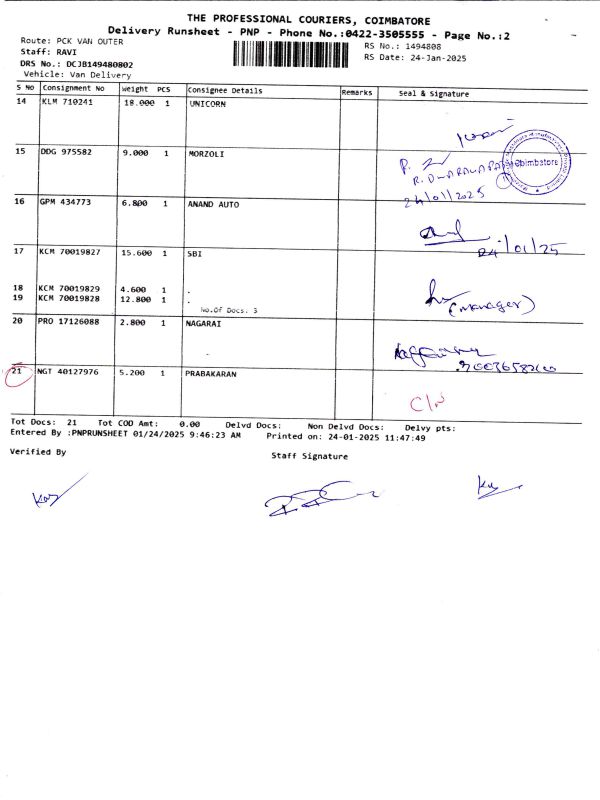 THE PROFESSIONAL COURIERS, COIMBATORE
Delivery Runsheet - PNP - Phone No.:0422-3505555 - Page No.:2
Route: PCK VAN OUTER
RS No.: 1494808
Staff: RAVI
RS Date: 24-Jan-2025
DRS No.: DCJB149480802
Vehicle: Van Delivery
S No Consignment No Weight PCS Consignee Details Remarks Seal & Signature
14 KLM 710241 18.000 1 UNICORN
15 DDG 975582 9.000 1 MORZOLI
Coimbatore
24/01/2025
16 GPM 434773 6.800 1 ANAND AUTO
24/01/25
17 KCM 70019827 15.600 1 SBI
18 KCM 70019829 4.600 1 .
19 KCM 70019828 12.800 1 .
(manager)
No.Of Docs: 3
20 PRO 17126088 2.800 1 NAGARAI
21 NGT 40127976 5.200 1 PRABAKARAN
Tot Docs: 21 Tot COD Amt: 0.00 Delvd Docs: Non Delvd Docs: Delvy pts:
Entered By :PNPRUNSHEET 01/24/2025 9:46:23 AM Printed on: 24-01-2025 11:47:49
Verified By
Staff Signature